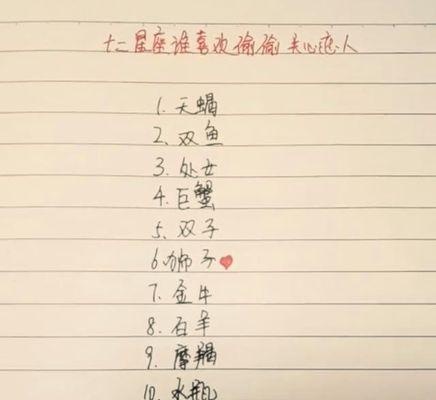 十二星座谁喜欢偷偷关心恋人
1. 天蝎
2. 双鱼
3. 处女
4. 巨蟹
5. 双子
6. 狮子
7. 金牛
8. 白羊
9. 摩羯
10. 水瓶